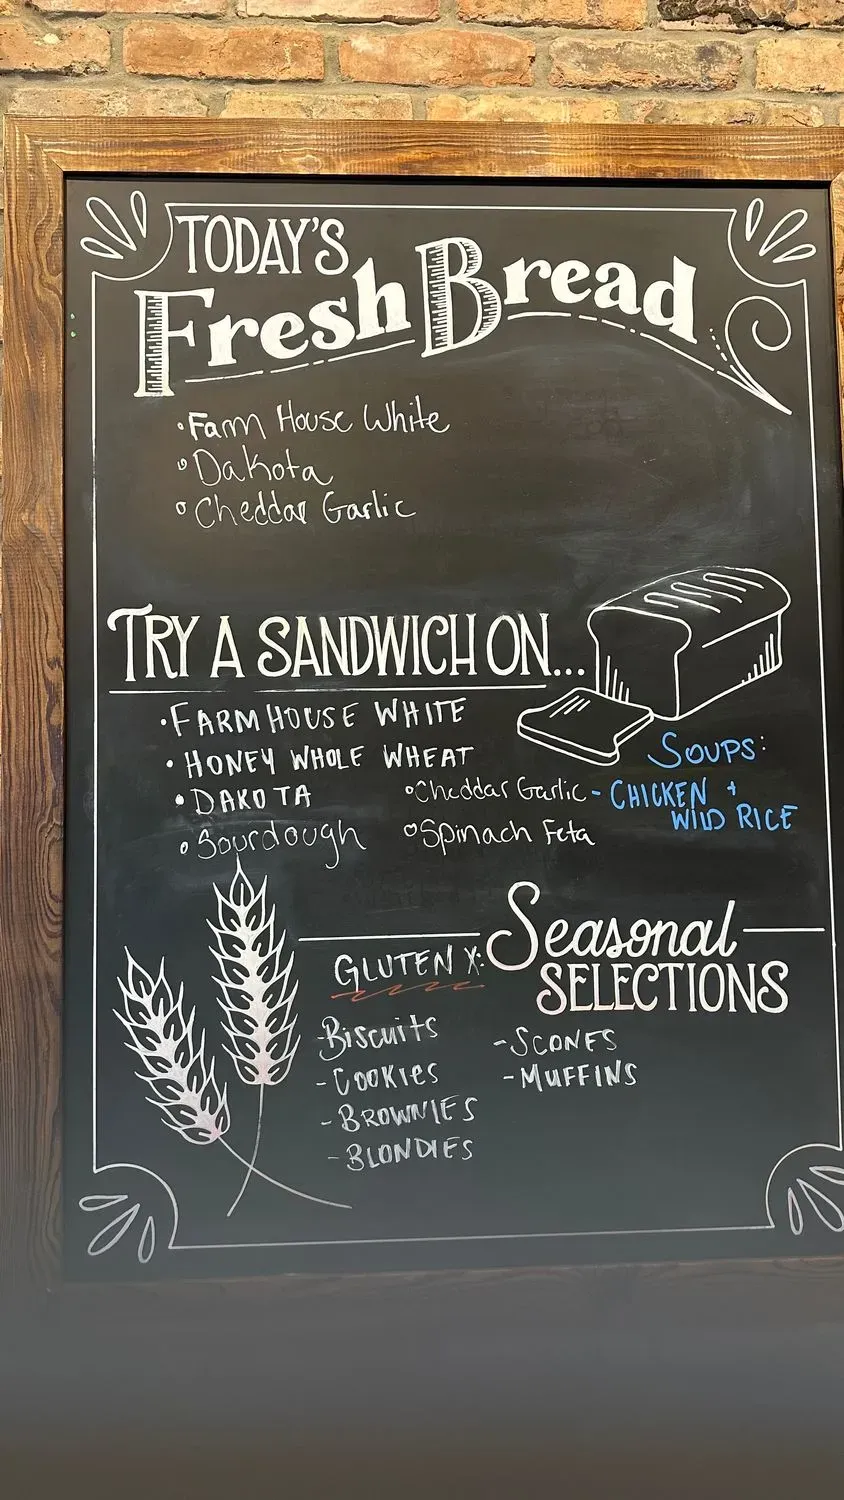 TODAY'S
Fresh Bread
• Farm House White
• Dakota
• Cheddar Garlic
TRY A SANDWICH ON...
• FARMHOUSE WHITE
• HONEY WHOLE WHEAT
• DAKOTA
• Sourdough
• Cheddar Garlic
• Spinach Feta
SOUPS:
- CHICKEN +
WILD RICE
Seasonal
SELECTIONS
GLUTEN X:
-Biscuits
-Cookies
-BROWNIES
-BLONDIES
-SCONES
-MUFFINS